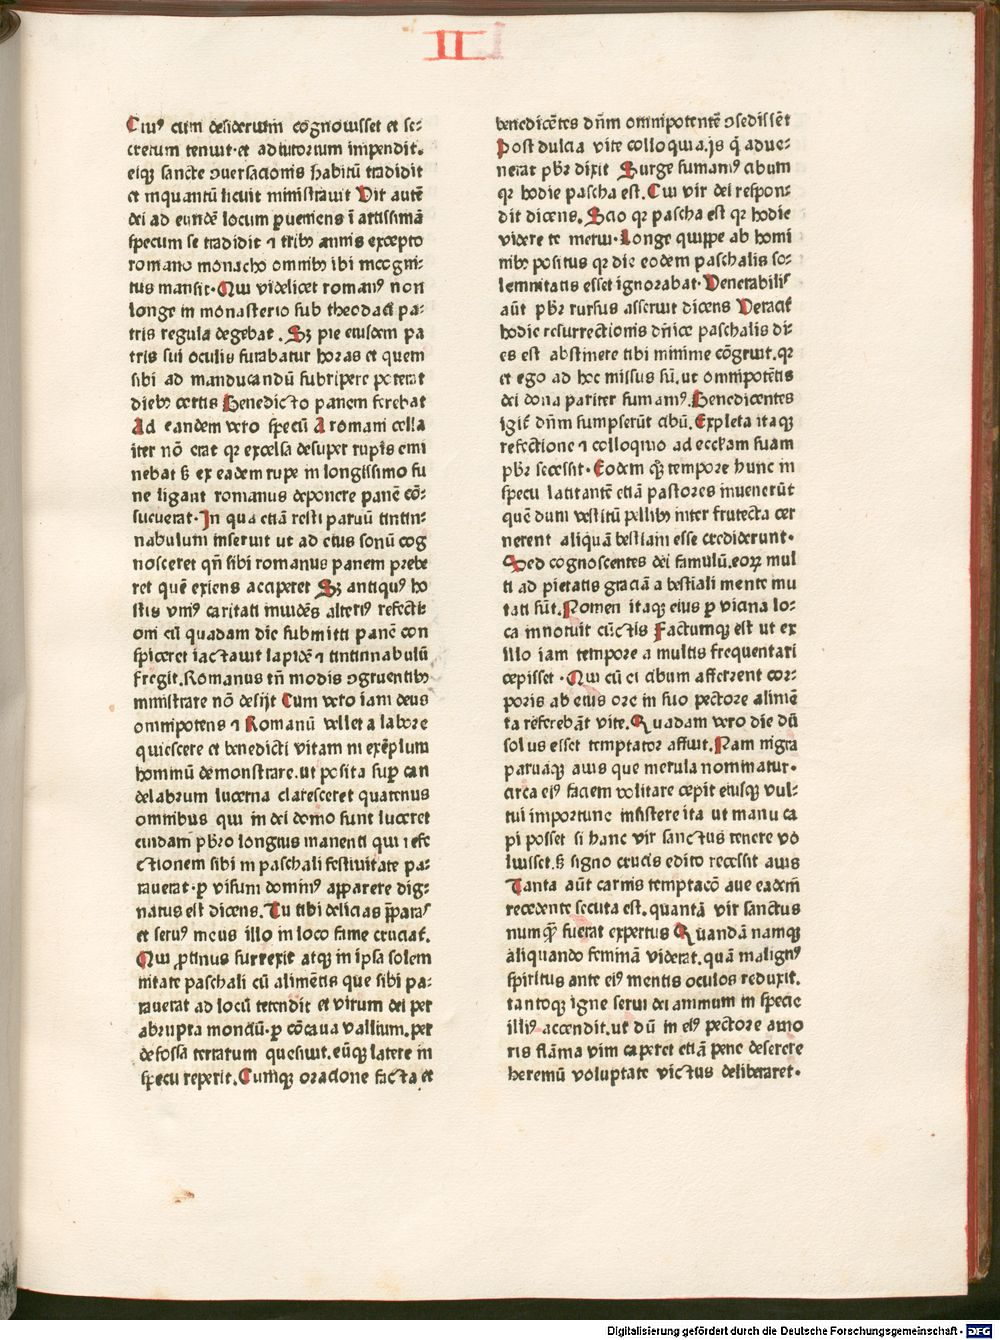 II
Ciuꝰ cum desiderium cognouisset et se⸗
cretum tenuit·et adiutorium impendit.
eiqꝫ sancte ↄuersacionis habitū tradidit
et inquantū licuit ministrauit Vir autē
dei ad eundē locum ꝑueniens ī artissimā
specum se tradidit ⁊ tribꝰ annis excepto
romano monacho omnibꝰ ibi incogni⸗
tus mansit·Qui videlicet romanꝰ non
longe in monasterio sub theodaci pa⸗
tris regula degebat . Sꝫ pie eiusdem pa
tris sui oculis furabatur horas et quem
sibi ad manducandū subripere poterat
diebꝰ certis Benedicto panem ferebat
Ad eandem vero specū A romani cella
iter nō erat qꝛ excelsa desuper rupis emi
nebat sꝫ ex eadem rupe in longissimo fu
ne ligant romanus deponere panē cō⸗
sueuerat·In qua etiā resti paruū tintin⸗
nabulum inseruit ut ad eius sonū cog
nosceret qn̄ sibi romanus panem prebe
ret quē exiens acciperet Sꝫ antiquꝰ ho
stis vniꝰ caritati inuidēs alteriꝰ refecti⸗
oni cū quadam die submitti panē con
spiceret iactauit lapidē ⁊ tintinnabulū
fregit.Romanus tn̄ modis ↄgruentibꝰ
ministrare nō desijt Cum vero iam deus
omnipotens ⁊ Romanū vellet a labore
quiescere et benedicti vitam in exēplum
hominū demonstrare.ut posita suꝑ can
delabrum lucerna claresceret quatenus
omnibus qui in dei domo sunt luceret
cuidam pb̄ro longius manenti qui refe
ctionem sibi in paschali festiuitate pa⸗
rauerat·ꝑ visum dominꝰ apparere dig⸗
natus est dicens.Tu tibi delicias p̄paras
et seruꝰ meus illo in loco fame cruciat̄.
Qui ꝓtinus surrexit atqꝫ in ipsa solem
nitate paschali cū alimētis que sibi pa⸗
rauerat ad locū tetendit et virum dei per
abrupta monciū·ꝑ cōcaua vallium.per
defossa terrarum quesiuit.eūqꝫ latere in
specu reperit.Cumqꝫ oracione facta et
benedicētes dn̄m omnipotentē ↄsedissēt
Post dulcia vite colloquia.is q̄ adue⸗
nerat pb̄r dixit Surge sumamꝰ cibum
qꝛ hodie pascha est.Cui vir dei respon⸗
dit dicens. Scio qꝛ pascha est qꝛ hodie
videre te merui·Longe quippe ab homi
nibꝰ positus qꝛ die eodem paschalis so⸗
lemnitatis esset ignorabat·Venerabilis
aūt pb̄r rursus asseruit dicens Veracit̄
hodie resurrectionis dn̄ice paschalis di⸗
es est abstinere tibi minime cōgruit.qꝛ
et ego ad hoc missus sū.ut omnipotētis
dei dona pariter sumamꝰ.Benedicentes
igit̄ dn̄m sumpserūt cibū.Expleta itaqꝫ
refectione ⁊ colloquio ad eccl̄iam suam
pb̄r secessit·Eodem qꝫ tempore hunc in
specu latitantē etiā pastores inuenerūt
quē dum vestitū pellibꝰ inter frutecta cer
nerent aliquā bestiam esse crediderunt·
Sed cognoscentes dei famulū.eoꝝ mul
ti ad pietatis graciā a bestiali mente mu
tati sūt.Nomen itaqꝫ eius ꝑ vicina lo⸗
ca innotuit cūctis Factumqꝫ est ut ex
illo iam tempore a multis frequentari
cepisset ·Qui cū ei cibum afferrent cor⸗
poris ab eius ore in suo pectore alimē
ta referebāt vite.Quadam vero die dū
solus esset temptator affuit.Nam nigra
paruaqꝫ auis que merula nominatur·
circa eiꝰ faciem volitare cepit eiusqꝫ vul⸗
tui importune insistere ita ut manu ca
pi posset si hanc vir sanctus tenere vo
luisset.sꝫ signo crucis edito recessit auis
Tanta aūt carnis temptacō aue eadem
recedente secuta est.quantā vir sanctus
numqꝫ fuerat expertus Quandā namqꝫ
aliquando feminā viderat.quā malignꝰ
spiritus ante eiꝰ mentis oculos reduxit.
tantoqꝫ igne serui dei animum in specie
illiꝰ accendit.ut dū in eiꝰ pectore amo
ris flāma vim caperet etiā pene deserere
heremū voluptate victus deliberaret·
Digitalisierung gefördert durch die Deutsche Forschungsgemeinschaft - DFG